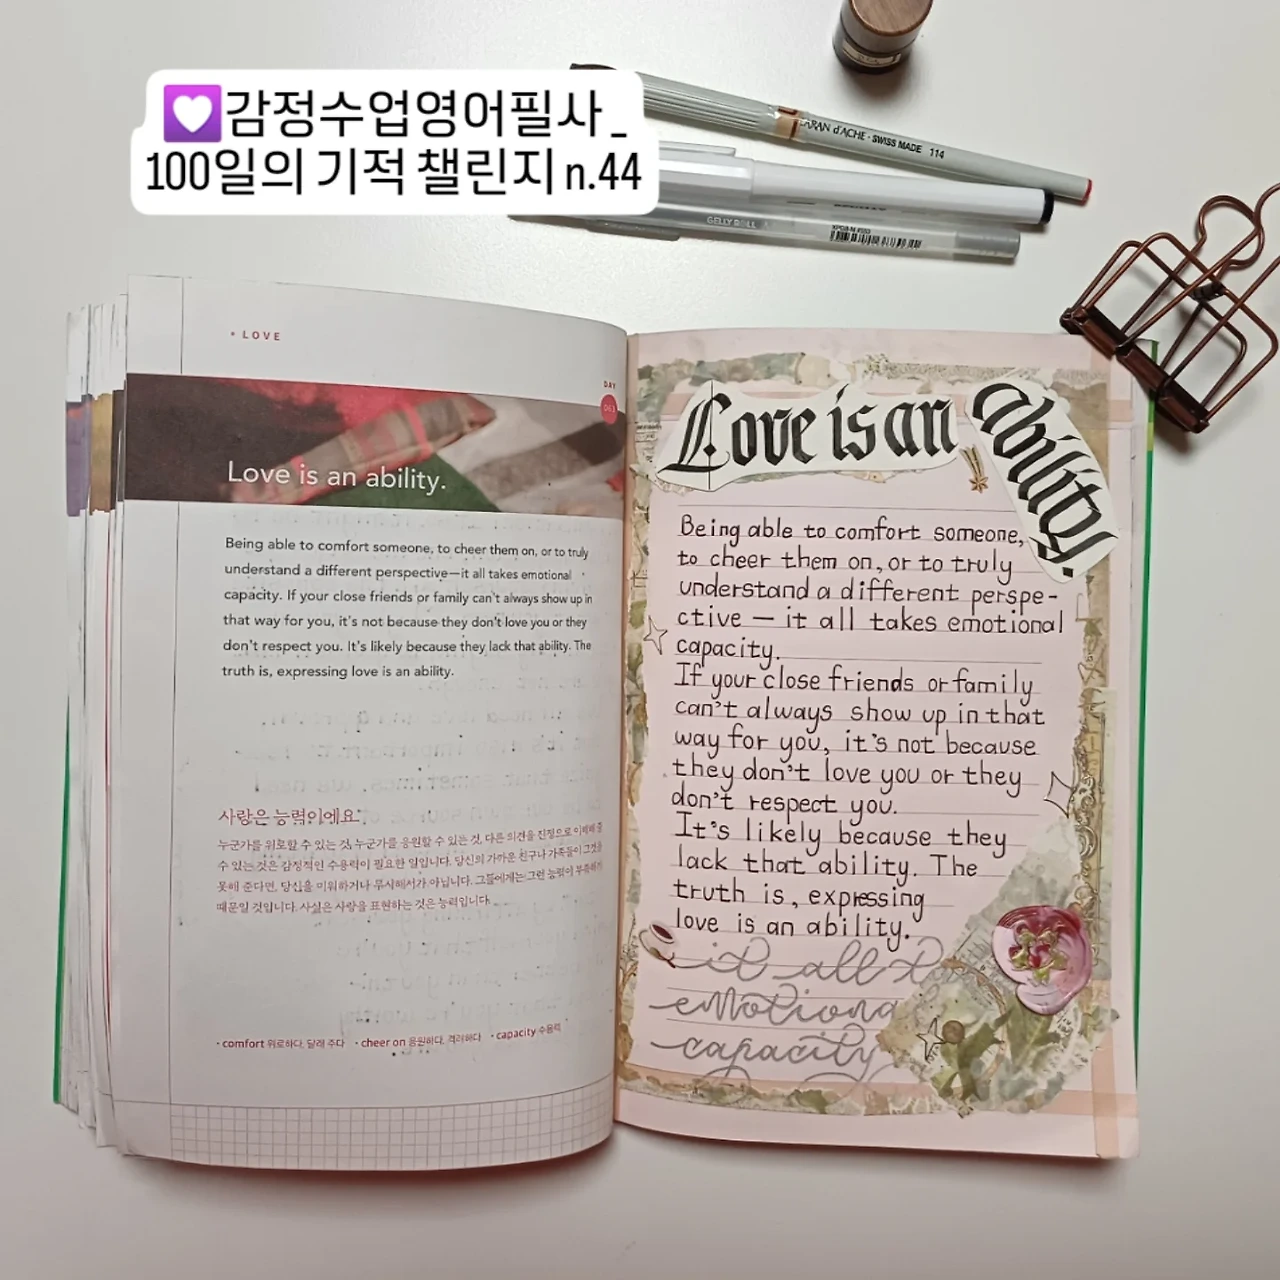 💟감정수업영어필사_
100일의 기적 챌린지 n.44
CARAN d'ACHE · SWISS MADE 114
GELLY ROLL
• LOVE
DAY
063
Love is an ability.
Being able to comfort someone, to cheer them on, or to truly
understand a different perspective—it all takes emotional
capacity. If your close friends or family can't always show up in
that way for you, it's not because they don't love you or they
don't respect you. It's likely because they lack that ability. The
truth is, expressing love is an ability.
사랑은 능력이에요
누군가를 위로할 수 있는 것, 누군가를 응원할 수 있는 것, 다른 의견을 진정으로 이해할
수 있는 것은 감정적인 수용력이 필요한 일입니다. 당신의 가까운 친구나 가족들이 그것을
못해 준다면, 당신을 미워하거나 무시해서가 아닙니다. 그들에게는 그런 능력이 부족하기
때문일 것입니다. 사실은 사랑을 표현하는 것은 능력입니다.
• comfort 위로하다, 달래 주다 • cheer on 응원하다, 격려하다 • capacity 수용력
Love is an ability.
Being able to comfort someone,
to cheer them on, or to truly
understand a different perspe-
ctive — it all takes emotional
capacity.
If your close friends or family
can't always show up in that
way for you, it's not because
they don't love you or they
don't respect you.
It's likely because they
lack that ability. The
truth is, expressing
love is an ability.
it all
emotiona
capacity